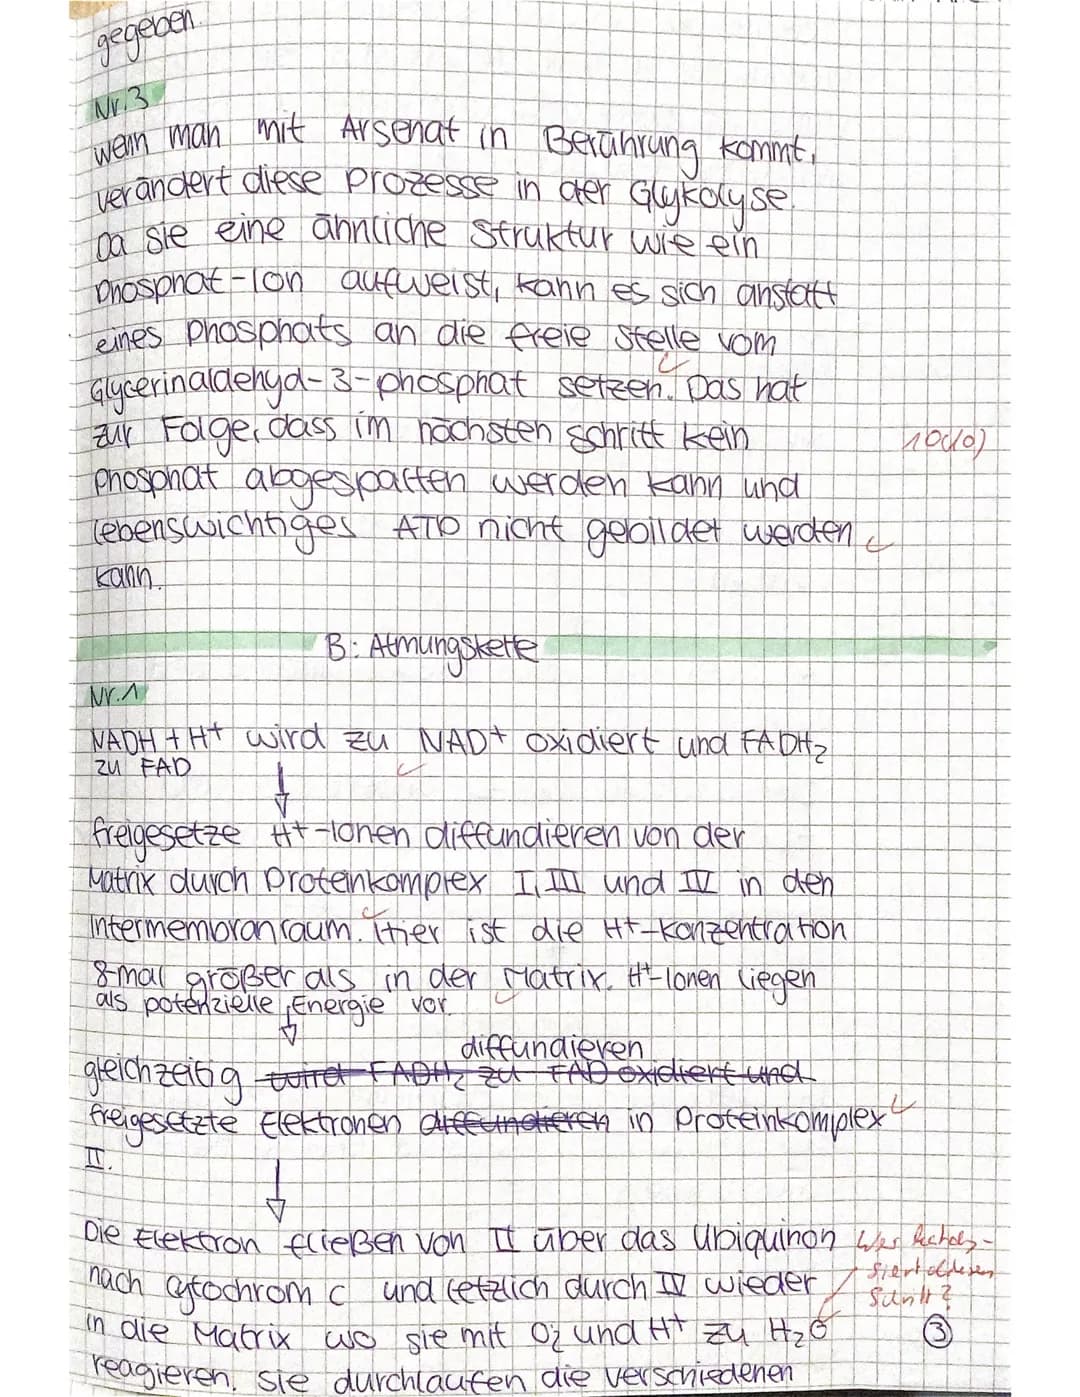 gegeben.
Nr. 3
wenn man mit Arsenat in Berührung kommt,
verändert diese Prozesse in der Glykolyse.
Da sie eine ähnliche Struktur wie ein
Phosphat-Ion aufweist, kann es sich anstatt
eines Phosphats an die freie Stelle vom
Glycerinaldehyd-3-phosphat setzen. Das hat
zur Folge, dass im nächsten Schritt kein
10(10)
Phosphat abgespalten werden kann und
lebenswichtiges ATP nicht gebildet werden
kann.
B: Atmungskette
Nr. 1
NADH + H+ wird zu NAD+ oxidiert und FADH₂
zu FAD
freigesetze H+-Ionen diffundieren von der
Matrix durch Proteinkomplex I, III und IV in den
Intermembranraum. Hier ist die H+-Konzentration
8-mal größer als in der Matrix. H+-Ionen liegen
als potenzielle Energie vor.
diffundieren
gleichzeitig wird FADH₂ zu FAD oxidiert und
freigesetzte Elektronen diffundieren in Proteinkomplex
II.
Die Elektron fließen von II über das Ubiquinon
nach cytochrom c und letzlich durch IV wieder
in die Matrix wo sie mit O₂ und H+ zu H₂O
reagieren. Sie durchlaufen die verschiedenen
Was
diesen
?
3